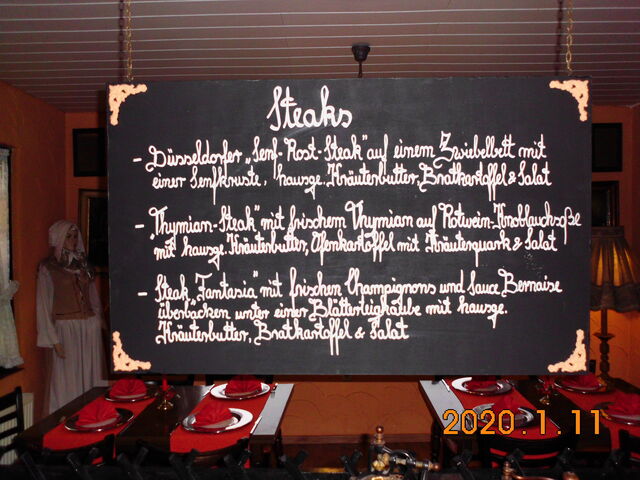 Steaks
- Düsseldorfer „Senf-Rost-Steak" auf einem Zwiebelbett mit
einer Senfkruste, hausge. Kräuterbutter, Bratkartoffel & Salat
- „Thymian-Steak" mit frischem Thymian auf Rotwein-Knoblauchsoße
mit hausge. Kräuterbutter, Ofenkartoffel mit Kräuterquark & Salat
- Steak „Fantasia" mit frischen Champignons und Sauce Bernaise
überbacken unter einer Blätterteighaube mit hausge.
Kräuterbutter, Bratkartoffel & Salat
2020. 1. 11